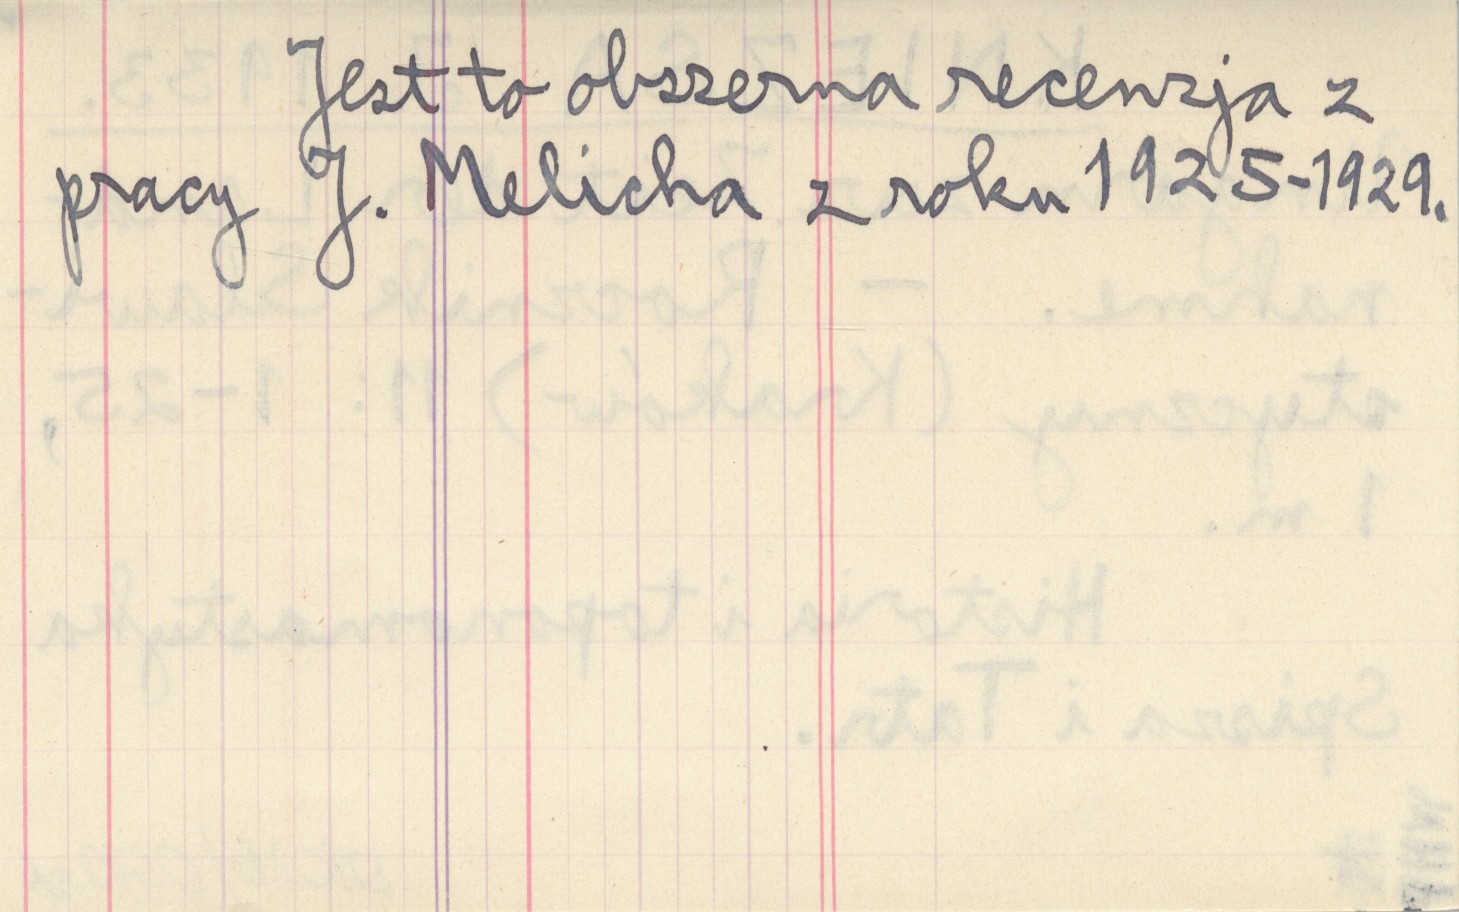 Jest to obszerna recenzja z
pracy J. Melicha z roku 1925-1929.